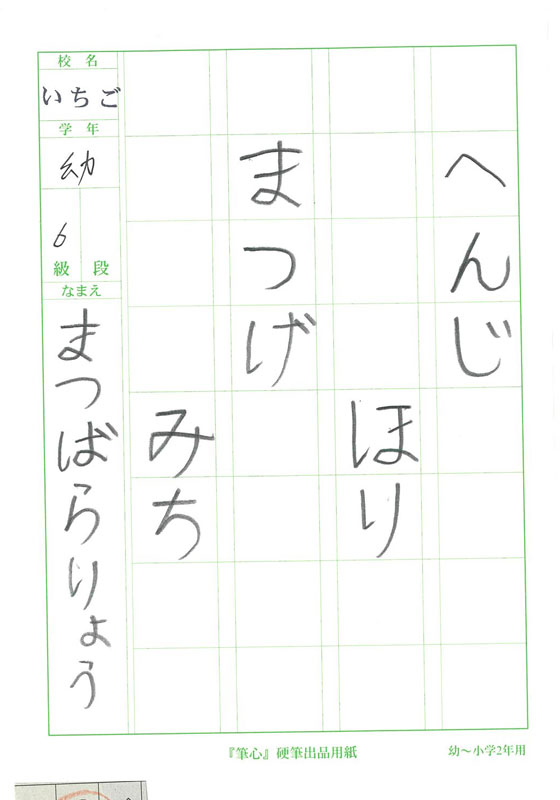 へんじ
ほり
まつげ
みち
校名
いちご
学年
幼
6
級 段
なまえ
まつばらりょう
『筆心』硬筆出品用紙
幼～小学2年用